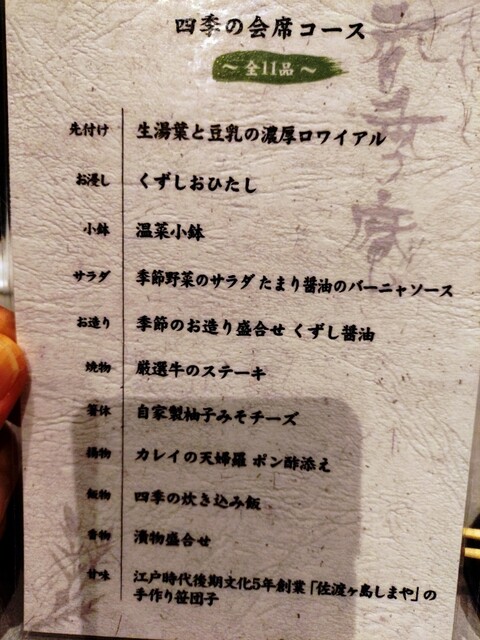 四季の会席コース
～全11品～
先付け 生湯葉と豆乳の濃厚ロワイアル
お浸し くずしおひたし
小鉢 温菜小鉢
サラダ 季節野菜のサラダ たまり醤油のバーニャソース
お造り 季節のお造り盛合せ くずし醤油
焼物 厳選牛のステーキ
箸休 自家製柚子みそチーズ
揚物 カレイの天婦羅 ポン酢添え
飯物 四季の炊き込み飯
香物 漬物盛合せ
甘味 江戸時代後期文化5年創業「佐渡ヶ島しまや」の
手作り笹団子